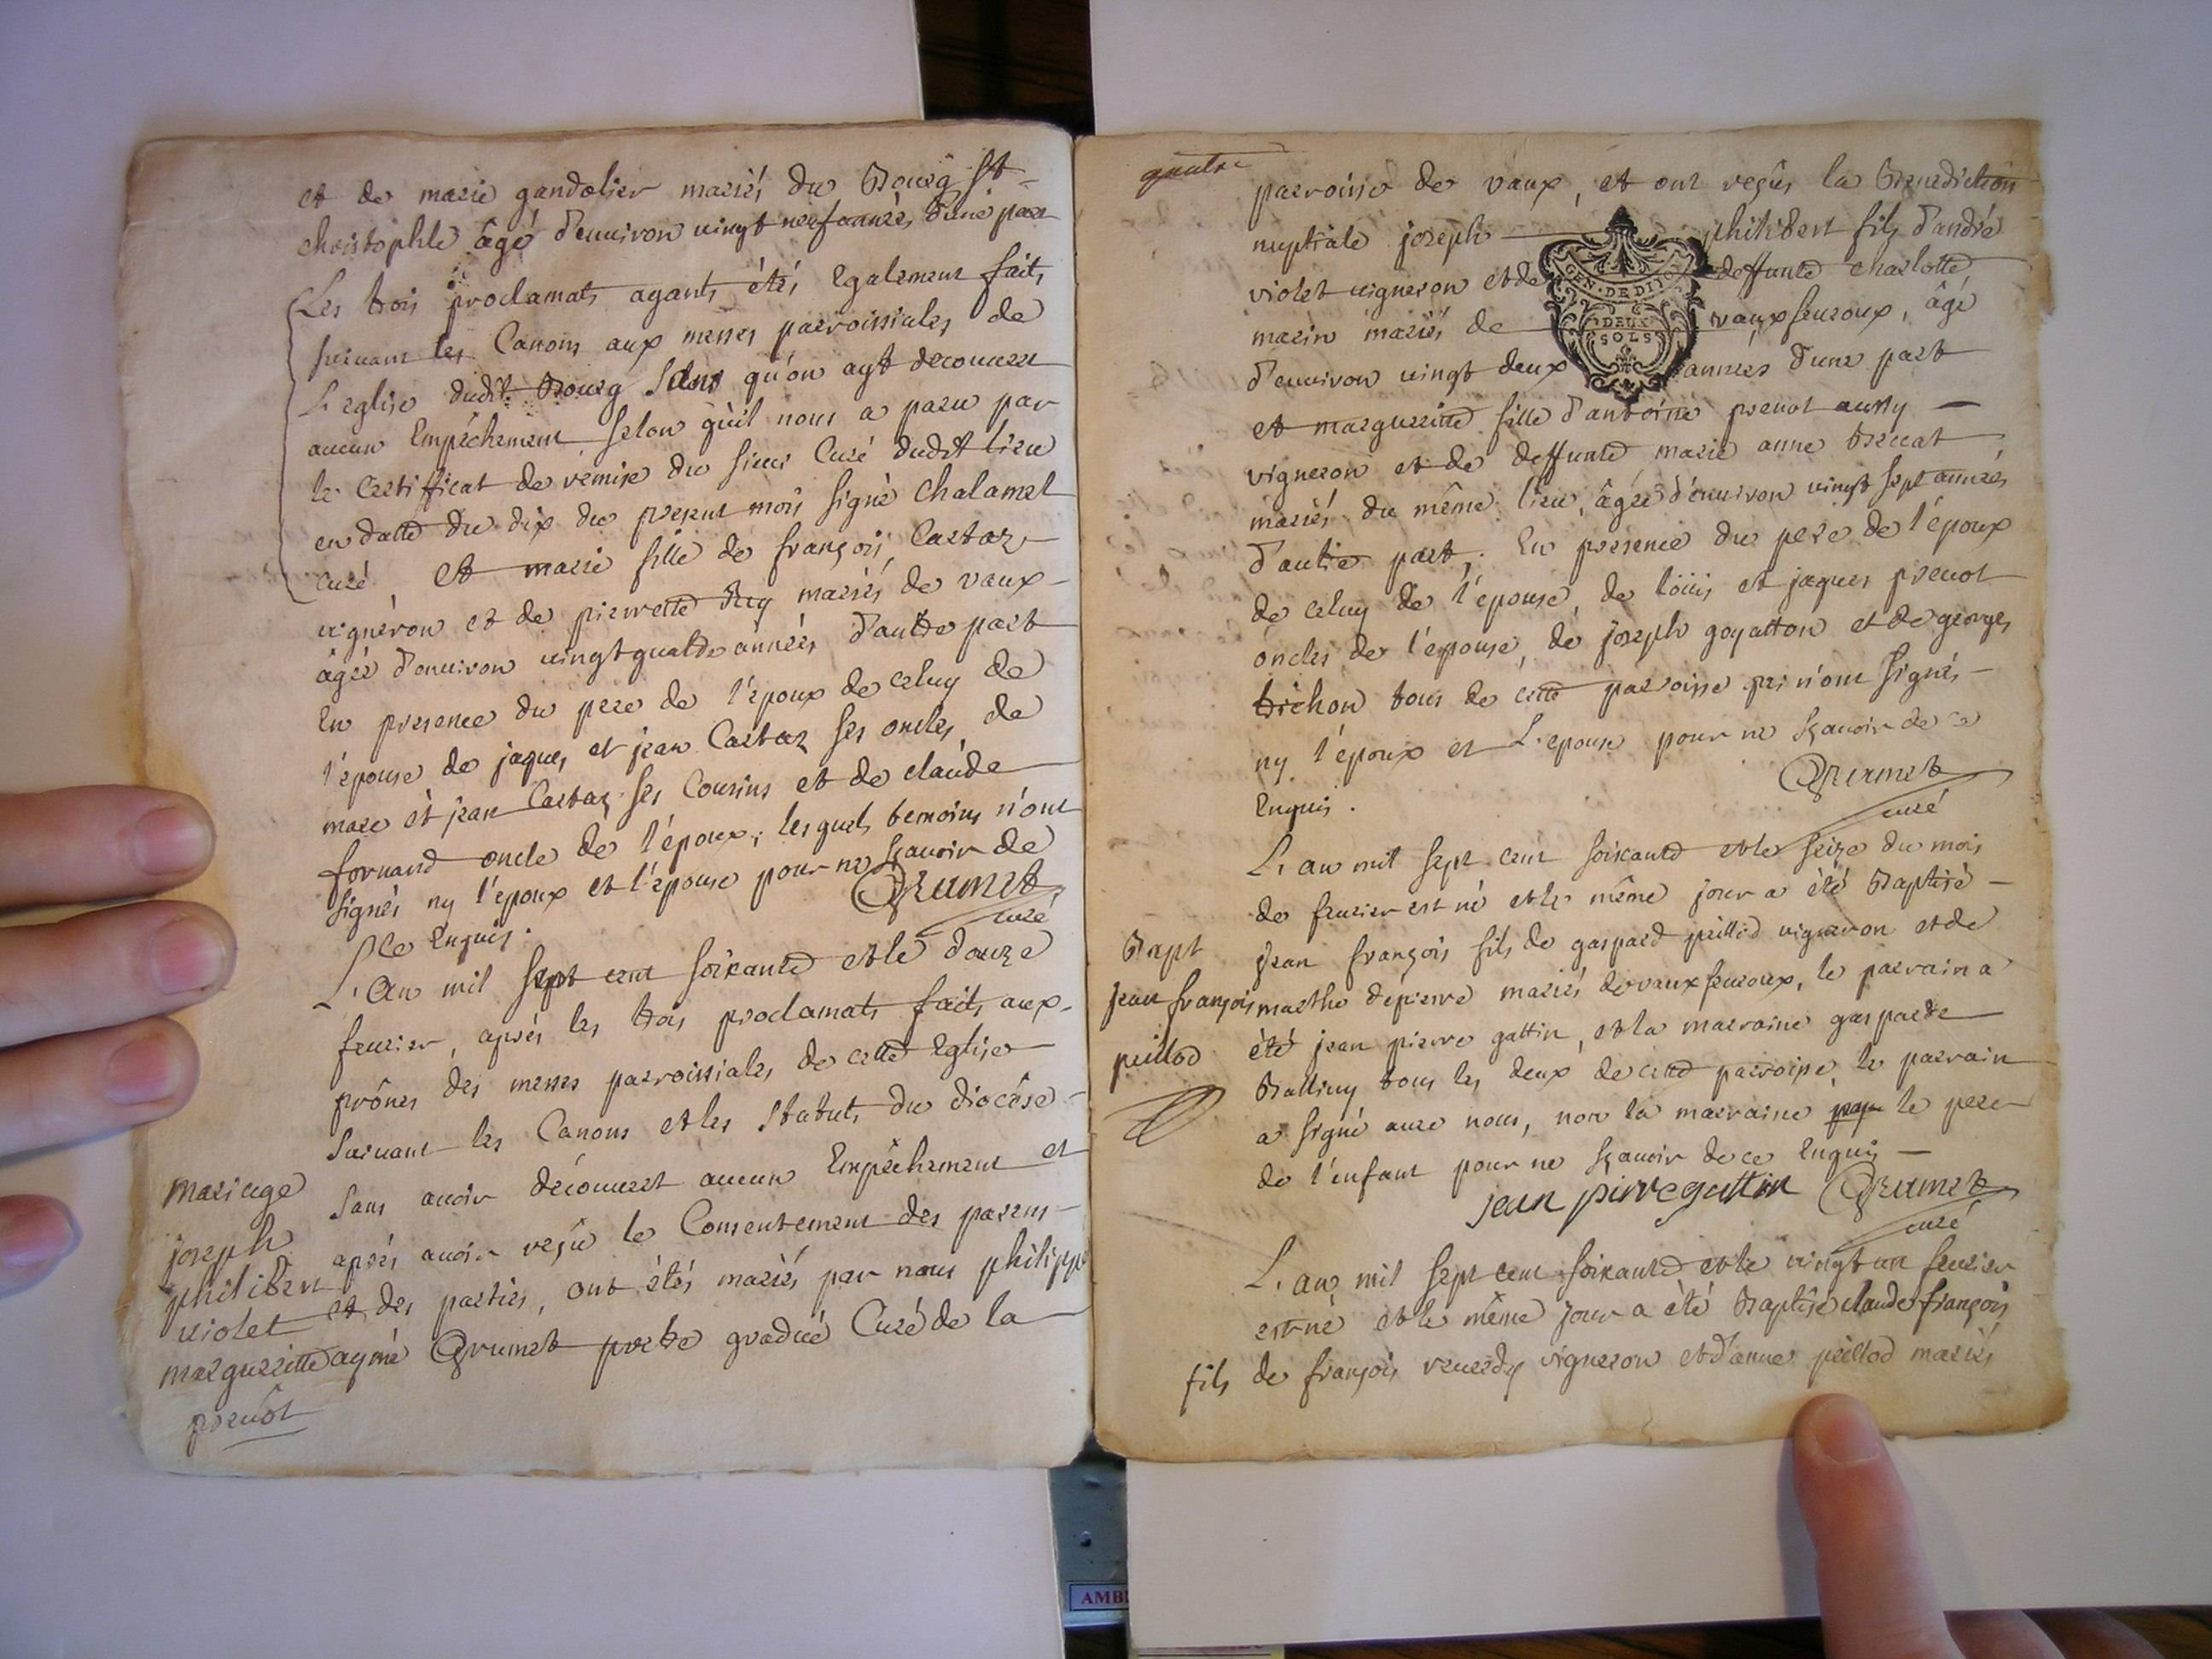 et de marie gandolier mariés du Bourg St
christophle âgé d'environ vingt neuf années, d'une part
Les trois proclamats ayants étés egalement faits
suivant les Canons aux messes parroissiales de
L'eglise dudit Bourg sans qu'on ayt decouvert
aucun Empêchement selon qu'il nous a paru par
le certifficat de remise du sieur Curé dudit lieu
en datte du dix du present mois signé chalamel
curé, et marie fille de françois Cartaz
vigneron et de pierrette Rey mariés de vaux
âgée d'environ vingt quatre années d'autre part
En presence du pere de l'époux de celuy de
l'épouse de jaques et jean Cartaz ses oncles, de
marc et jean Cartaz ses Cousins et de claude
fornand oncle de l'époux; les quels temoins n'ont
signés ny l'époux et l'épouse pour ne sçavoir de
ce Enquis.
Grumet
curé
L'an mil sept cent soixante et le douze
fevrier, aprés les trois proclamats faits aux
prônes des messes parroissiales de cette Eglise
suivant les Canons et les statuts du diocêse
mariage
sans avoir découvert aucun Empêchement et
joseph
aprés avoir reçû le Consentement des parens
philibert
violet et
des parties, ont étés mariés par nous philippe
margueritte
aymé Grumet prete gradué Curé de la
prevôt
quatre
parroisse de vaux, et ont reçûs la Benediction
nuptiale joseph philibert fils d'andré
violet vigneron et de deffunte charlotte
GEN. DEDIT
DEUX
SOLS
marin mariés de vaux fevroux, âgé
d'environ vingt deux années d'une part
et margueritte fille d'antoine prevot aussy
vigneron et de deffunte marie anne
mariés du même lieu, âgée d'environ vingt sept années
d'autre part; En presence du pere de l'époux
de celuy de l'épouse, de loüis et jaques prevot
oncles de l'épouse, de joseph goyatton et de georges
trichon tous de cette parroisse qui n'ont signés
ny l'époux et L'epouse pour ne sçavoir de ce
Enquis.
Grumet
curé
L'an mil sept cent soixante et le seize du mois
de fevrier est né et le même jour a été Baptisé
Bapt
jean françois fils de gaspard peillod vigneron et de
jean françois
marthe depierre mariés de vaux fevroux, le parrain a
peillod
été jean pierre gattin, et la marraine gasparde
Balliny tous les deux de cette parroisse, le parrain
a signé avec nous, non la marraine le pere
de l'enfant pour ne sçavoir de ce Enquis
jean pierre gattin Grumet
curé
L'an mil sept cent soixante et le vingt un fevrier
est né et le même jour a été Baptisé claude françois
fils de françois vigneron et d'anne peillod mariés
AMB